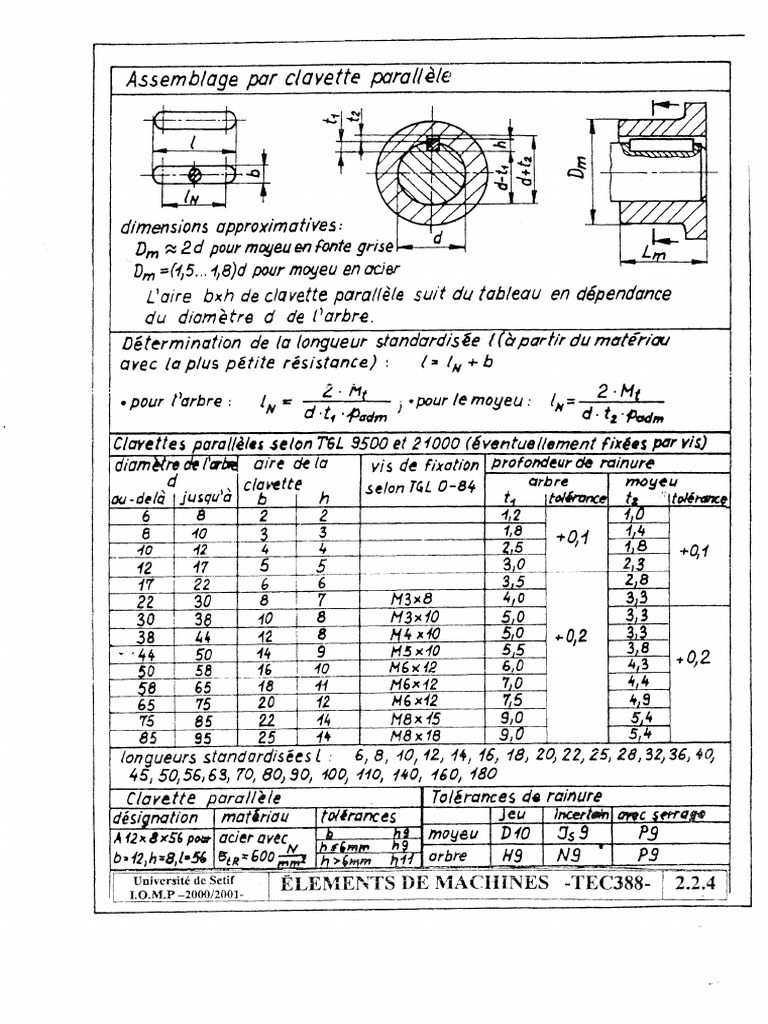 Assemblage par clavette parallèle
l
b
lN
t1
t2
h
d-t1
d+t2
d
Dm
Lm
dimensions approximatives:
Dm ≈ 2d pour moyeu en fonte grise
Dm =(1,5...1,8)d pour moyeu en acier
L'aire b×h de clavette parallèle suit du tableau en dépendance
du diamètre d de l'arbre.
Détermination de la longueur standardisée l (à partir du matériau
avec la plus pétite résistance) : l = lN + b
• pour l'arbre : lN = 2·Mt / d·t1·padm ; • pour le moyeu : lN = 2·Mt / d·t2·padm
Clavettes parallèles selon TGL 9500 et 21000 (éventuellement fixées par vis)
diamètre de l'arbre aire de la vis de fixation profondeur de rainure
d clavette selon TGL 0-84 arbre moyeu
au-delà jusqu'à b h t1 tolérance t2 tolérance
6 8 2 2 1,2 1,0
8 10 3 3 1,8 +0,1 1,4
10 12 4 4 2,5 1,8 +0,1
12 17 5 5 3,0 2,3
17 22 6 6 3,5 2,8
22 30 8 7 M3×8 4,0 3,3
30 38 10 8 M3×10 5,0 3,3
38 44 12 8 M4×10 5,0 +0,2 3,3
44 50 14 9 M5×10 5,5 3,8 +0,2
50 58 16 10 M6×12 6,0 4,3
58 65 18 11 M6×12 7,0 4,4
65 75 20 12 M6×12 7,5 4,9
75 85 22 14 M8×15 9,0 5,4
85 95 25 14 M8×18 9,0 5,4
longueurs standardisées l : 6, 8, 10, 12, 14, 16, 18, 20, 22, 25, 28, 32, 36, 40,
45, 50, 56, 63, 70, 80, 90, 100, 110, 140, 160, 180
Clavette parallèle Tolérances de rainure
désignation matériau tolérances jeu incertain avec serrage
A12×8×56 pour acier avec b h9 moyeu D10 Js9 P9
b=12, h=8, l=56 σtR = 600 N/mm² h≤6mm h9 arbre H9 N9 P9
h>6mm h11
Université de Setif ÉLEMENTS DE MACHINES -TEC388- 2.2.4
I.O.M.P –2000/2001-